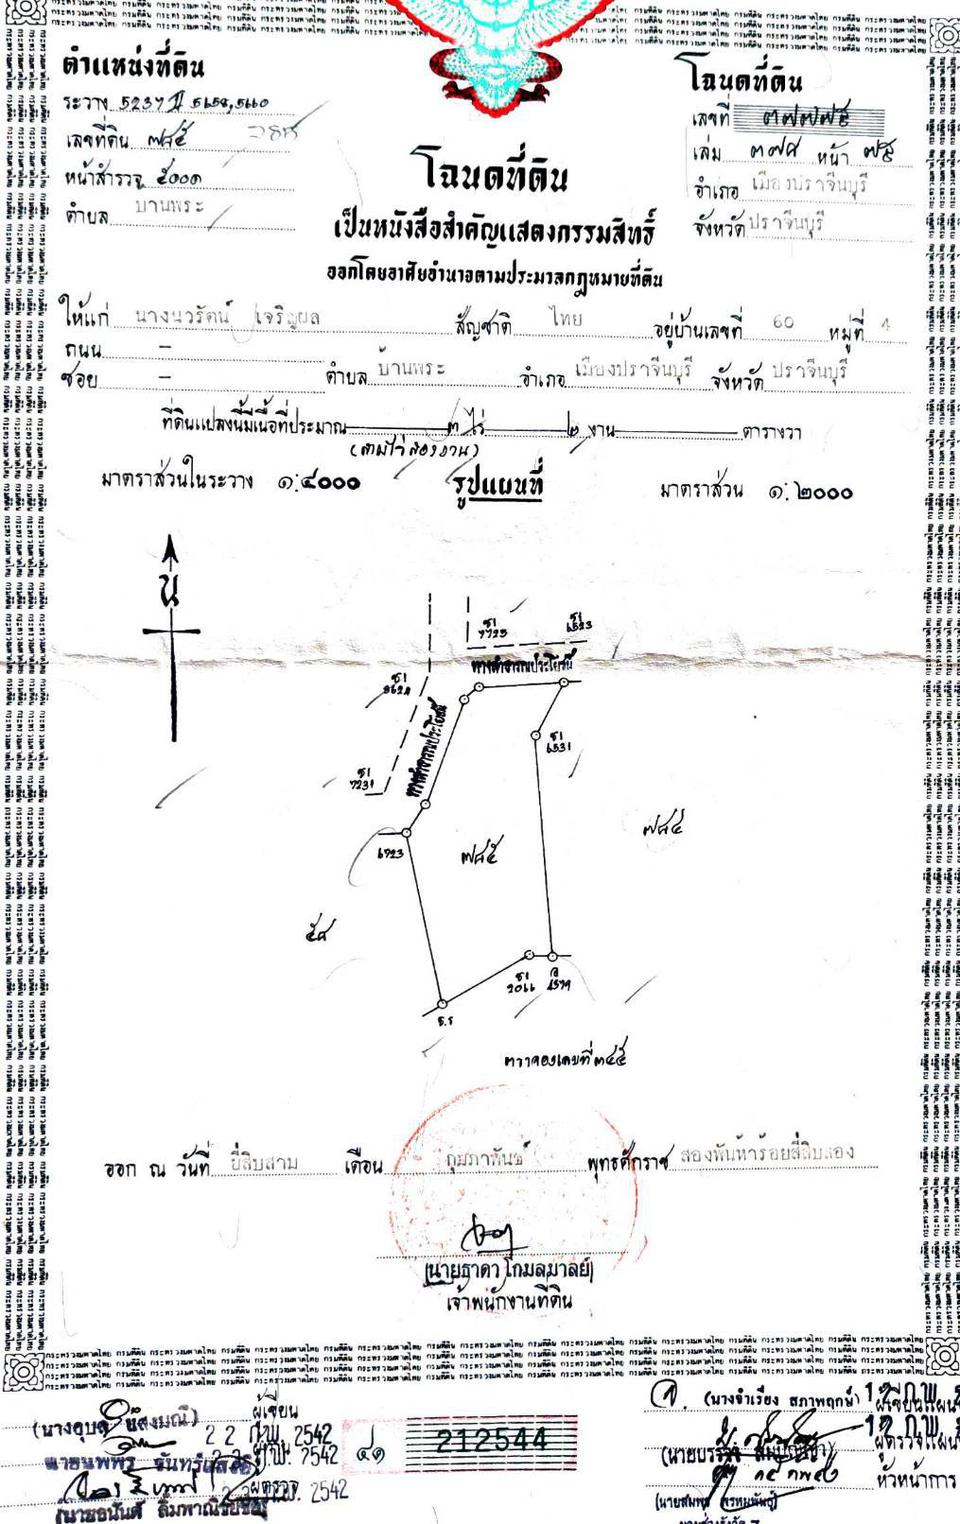 ตำแหน่งที่ดิน
ระวาง 5237 II 5658,5660
เลขที่ดิน ๗๘๕
หน้าสำรวจ ๕๐๐๑
ตำบล บ้านพระ
โฉนดที่ดิน
เลขที่ ๓๗๗๗๕
เล่ม ๓๗๘ หน้า ๗๕
อำเภอ เมืองปราจีนบุรี
จังหวัด ปราจีนบุรี
โฉนดที่ดิน
เป็นหนังสือสำคัญแสดงกรรมสิทธิ์
ออกโดยอาศัยอำนาจตามประมวลกฎหมายที่ดิน
ให้แก่ นางนวรัตน์ เจริญผล สัญชาติ ไทย อยู่บ้านเลขที่ 60 หมู่ที่ 4
ถนน –
ซอย – ตำบล บ้านพระ อำเภอ เมืองปราจีนบุรี จังหวัด ปราจีนบุรี
ที่ดินแปลงนี้มีเนื้อที่ประมาณ ๓ ไร่ ๒ งาน ตารางวา
(สามไร่สองงาน)
มาตราส่วนในระวาง ๑:๔๐๐๐ รูปแผนที่ มาตราส่วน ๑:๒๐๐๐
น
ทางสาธารณประโยชน์
ทางสาธารณประโยชน์
6531
7231
6723
๗๘๕
๗๘๔
๕๘
2066
ออก ณ วันที่ ยี่สิบสาม เดือน กุมภาพันธ์ พุทธศักราช สองพันห้าร้อยสี่สิบสอง
(นายธาดา โกมลมาลย์)
เจ้าพนักงานที่ดิน
ผู้เขียน
22 ก.พ. 2542
212544
(นางจำเรียง สภาพฤกษ์)
หัวหน้าการ